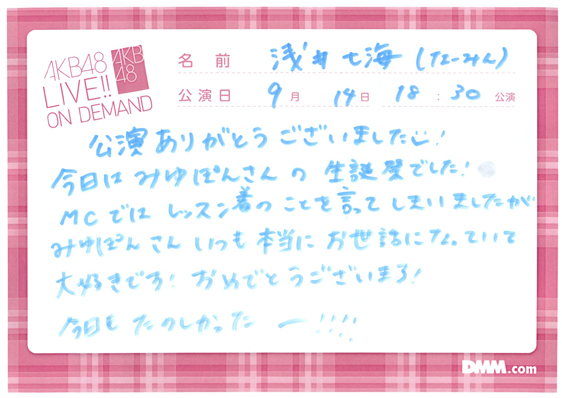 AKB48
LIVE!!
ON DEMAND
AKB
48
名前 浅井七海(なーみん)
公演日 9月 14日 18:30 公演
公演ありがとうございました!
今日はみゆぽんさんの生誕祭でした!
MCではレッスン着のことを言ってしまいましたが
みゆぽんさんいつも本当にお世話になっていて
大好きです!おめでとうございます!
今日もたのしかったー!!!!
DMM.com